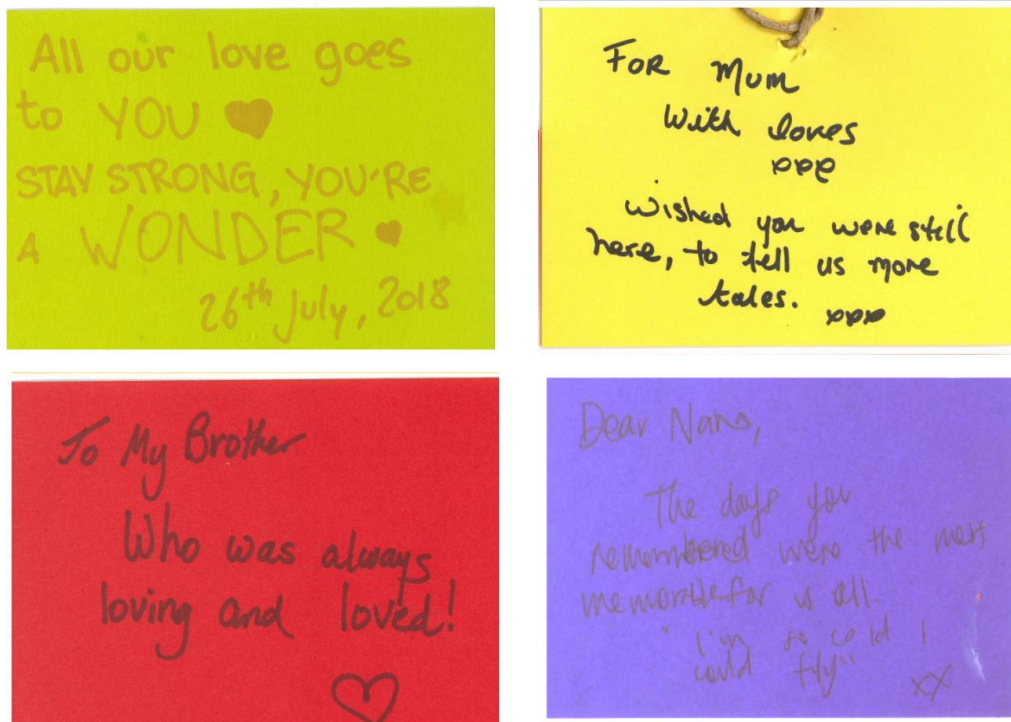 All our love goes
to YOU ♥
STAY STRONG, YOU'RE
A WONDER ♥
26th July, 2018
FOR Mum
With loves
xxx
Wished you were still
here, to tell us more
tales. xxx
To My Brother
Who was always
loving and loved!
♡
Dear Nano,
The days you
remembered were the most
memorable for us all.
"I'm so cold I
could fly"
xx